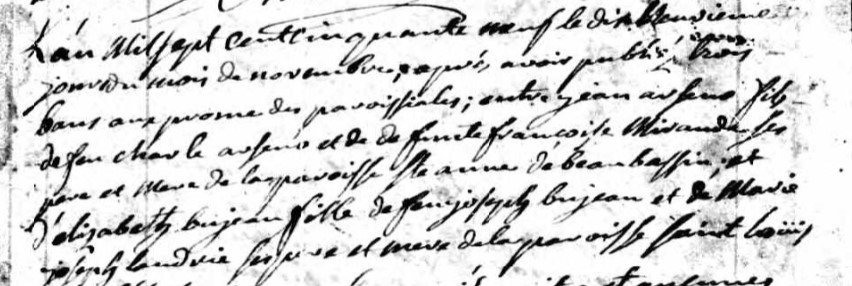 L'an Mil sept cent cinquante neuf le dix Neuvieme
jour du mois de novembre, après avoir publié trois
bans aux prome des paroissiales; entre jean arseno fils
de feu charle arseno et de defunte françoise Mirande ses
pere et Mere de la paroisse ste anne de beaubassin; et
d'elizabeth bujeau fille de feu joseph bujeau et de Marie
joseph landrie ses pere et mere de la paroisse saint loüis
et